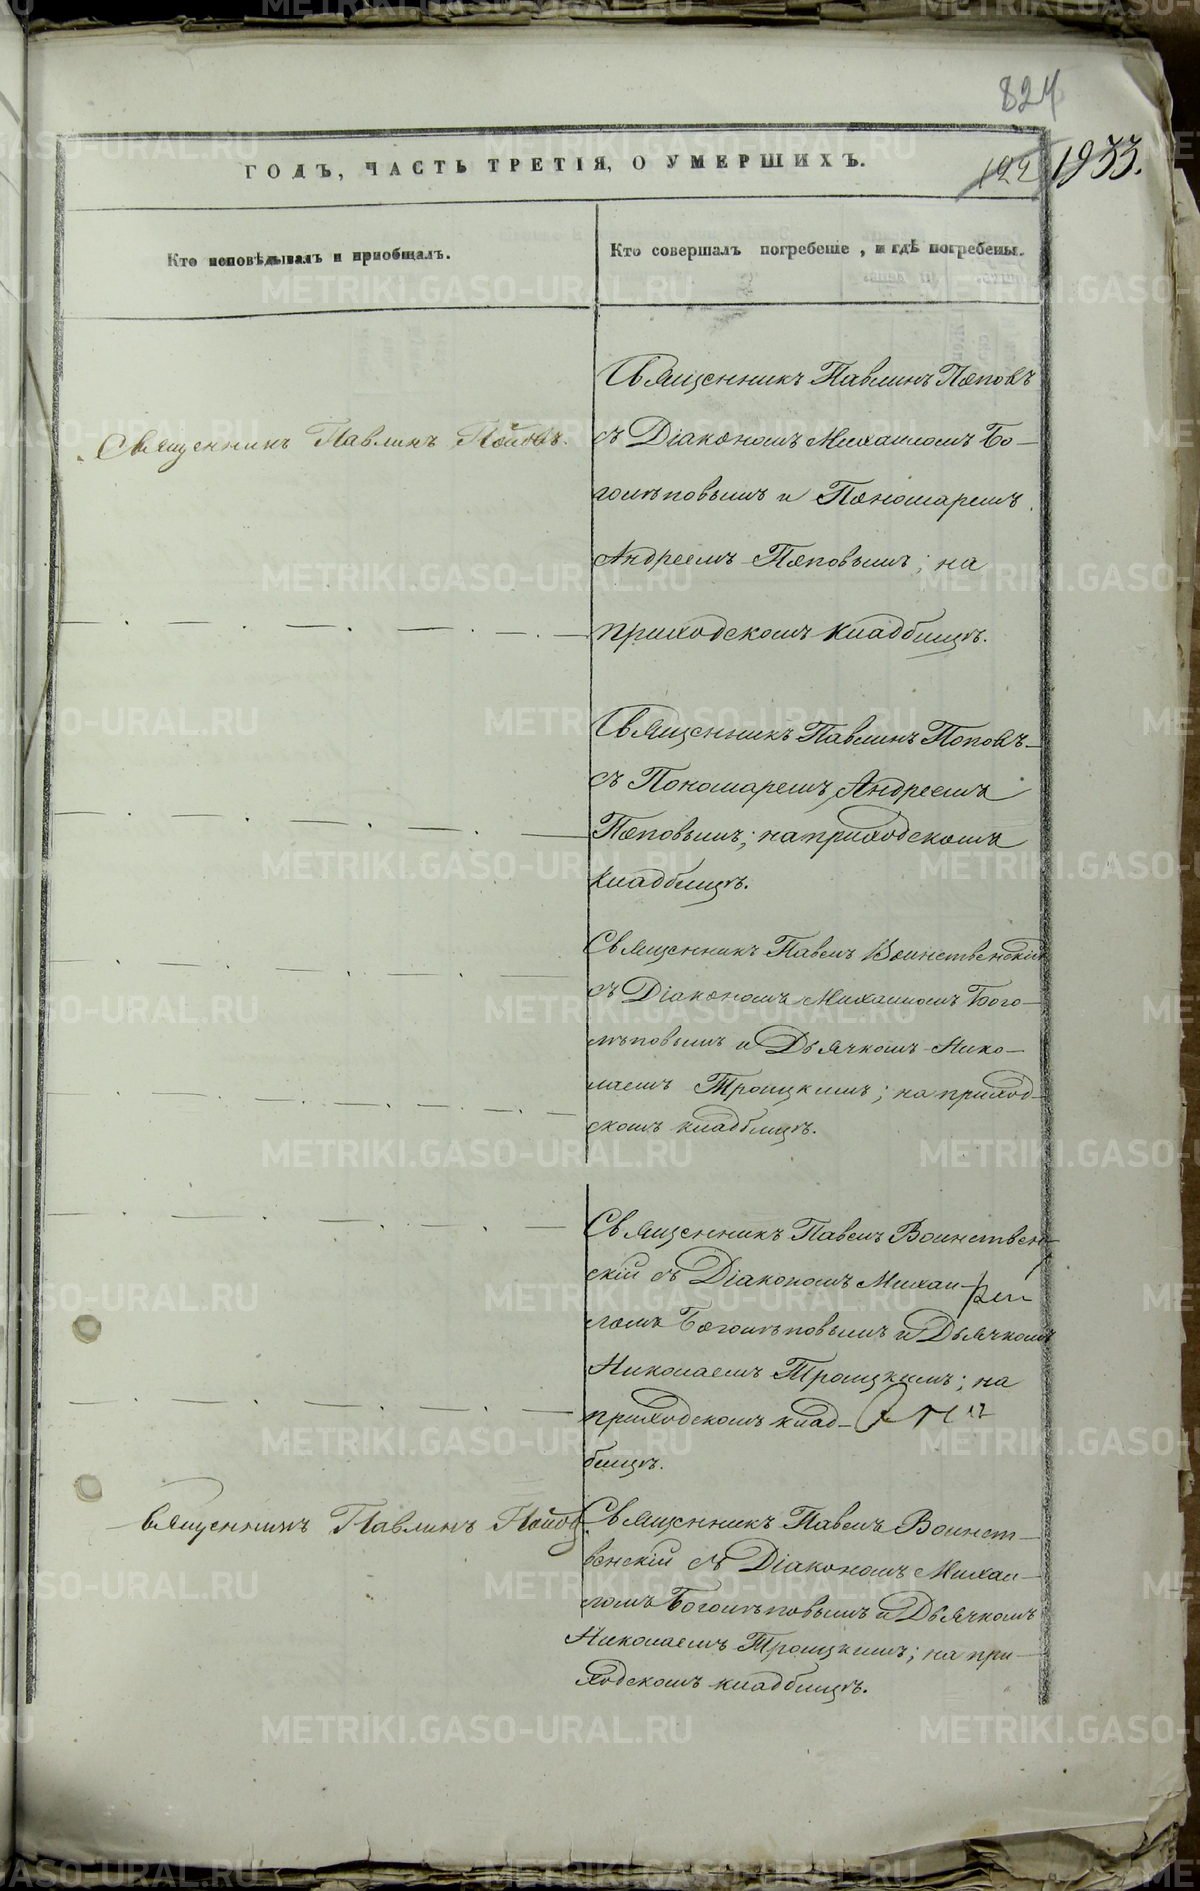 824
ГОДЪ, ЧАСТЬ ТРЕТІЯ, О УМЕРШИХЪ.
122
1933.
Кто исповѣдывалъ и пріобщалъ.
Кто совершалъ погребеніе, и гдѣ погребены.
Священникъ Павлинъ Поповъ.
Священникъ Павлинъ Поповъ
съ Діакономъ Михаиломъ Бо-
голѣповымъ и Пономаремъ
Андреемъ Поповымъ; на
приходскомъ кладбищѣ.
Священникъ Павлинъ Поповъ
съ Пономаремъ Андреемъ
Поповымъ; на приходскомъ
кладбищѣ.
Священникъ Павелъ Воинственскій
съ Діакономъ Михаиломъ Бого-
лѣповымъ и Дьячкомъ Нико-
лаемъ Троицкимъ; на приход-
скомъ кладбищѣ.
Священникъ Павелъ Воинствен-
скій съ Діакономъ Михаи-
ломъ Боголѣповымъ и Дьячкомъ
Николаемъ Троицкимъ; на
приходскомъ клад-
бищѣ.
Священникъ Павлинъ Попов
Священникъ Павелъ Воинст-
венскій съ Діакономъ Михаи-
ломъ Боголѣповымъ и Дьячкомъ
Николаемъ Троицкимъ; на при-
ходскомъ кладбищѣ.
METRIKI.GASO-URAL.RU